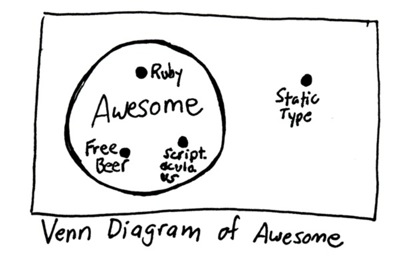 Ruby
Awesome
Free
Beer
Script.
acula.
us
Static
Type
Venn Diagram of Awesome